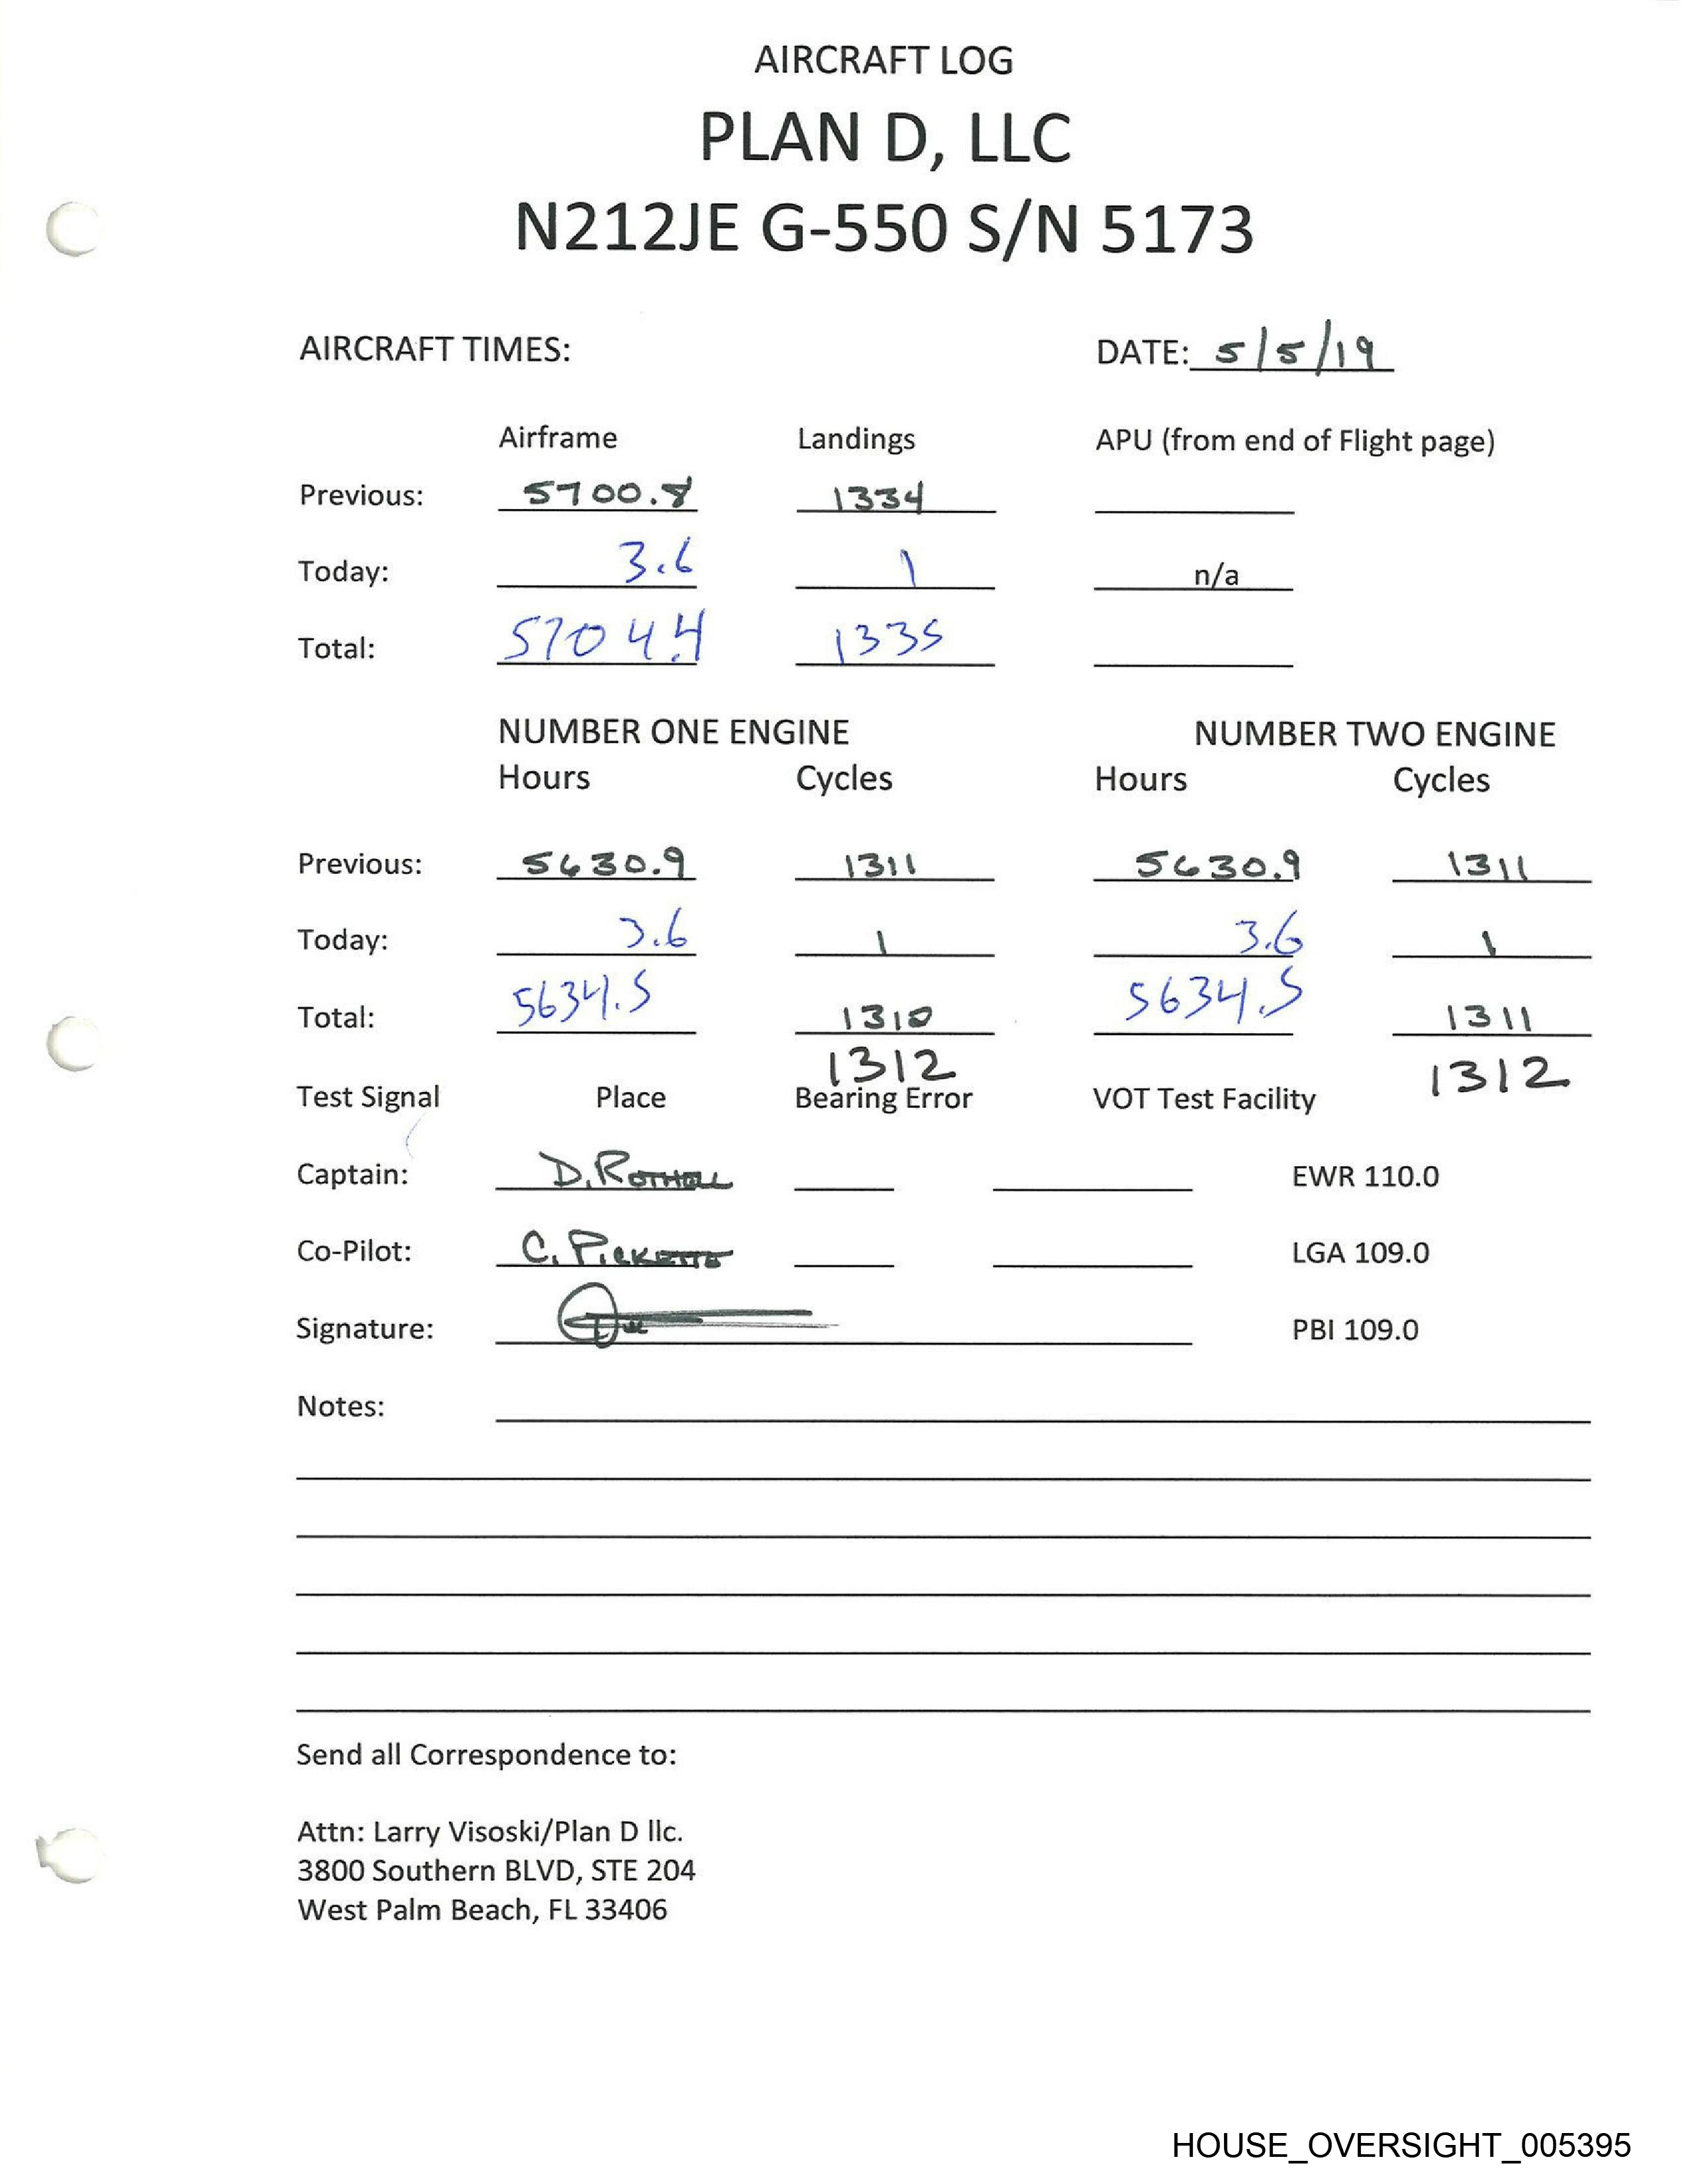 AIRCRAFT LOG
PLAN D, LLC
N212JE G-550 S/N 5173
AIRCRAFT TIMES: DATE: 5/5/19
Airframe Landings APU (from end of Flight page)
Previous: 5700.8 1334
Today: 3.6 1 n/a
Total: 5704.4 1335
NUMBER ONE ENGINE NUMBER TWO ENGINE
Hours Cycles Hours Cycles
Previous: 5630.9 1311 5630.9 1311
Today: 3.6 1 3.6 1
Total: 5634.5 1310 5634.5 1311
1312 1312
Test Signal Place Bearing Error VOT Test Facility
Captain: D. EWR 110.0
Co-Pilot: C. LGA 109.0
Signature: PBI 109.0
Notes:
Send all Correspondence to:
Attn: Larry Visoski/Plan D llc.
3800 Southern BLVD, STE 204
West Palm Beach, FL 33406
HOUSE_OVERSIGHT_005395